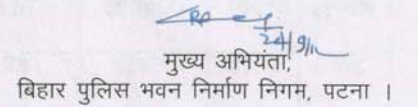 24/9/11
मुख्य अभियंता,
बिहार पुलिस भवन निर्माण निगम, पटना ।